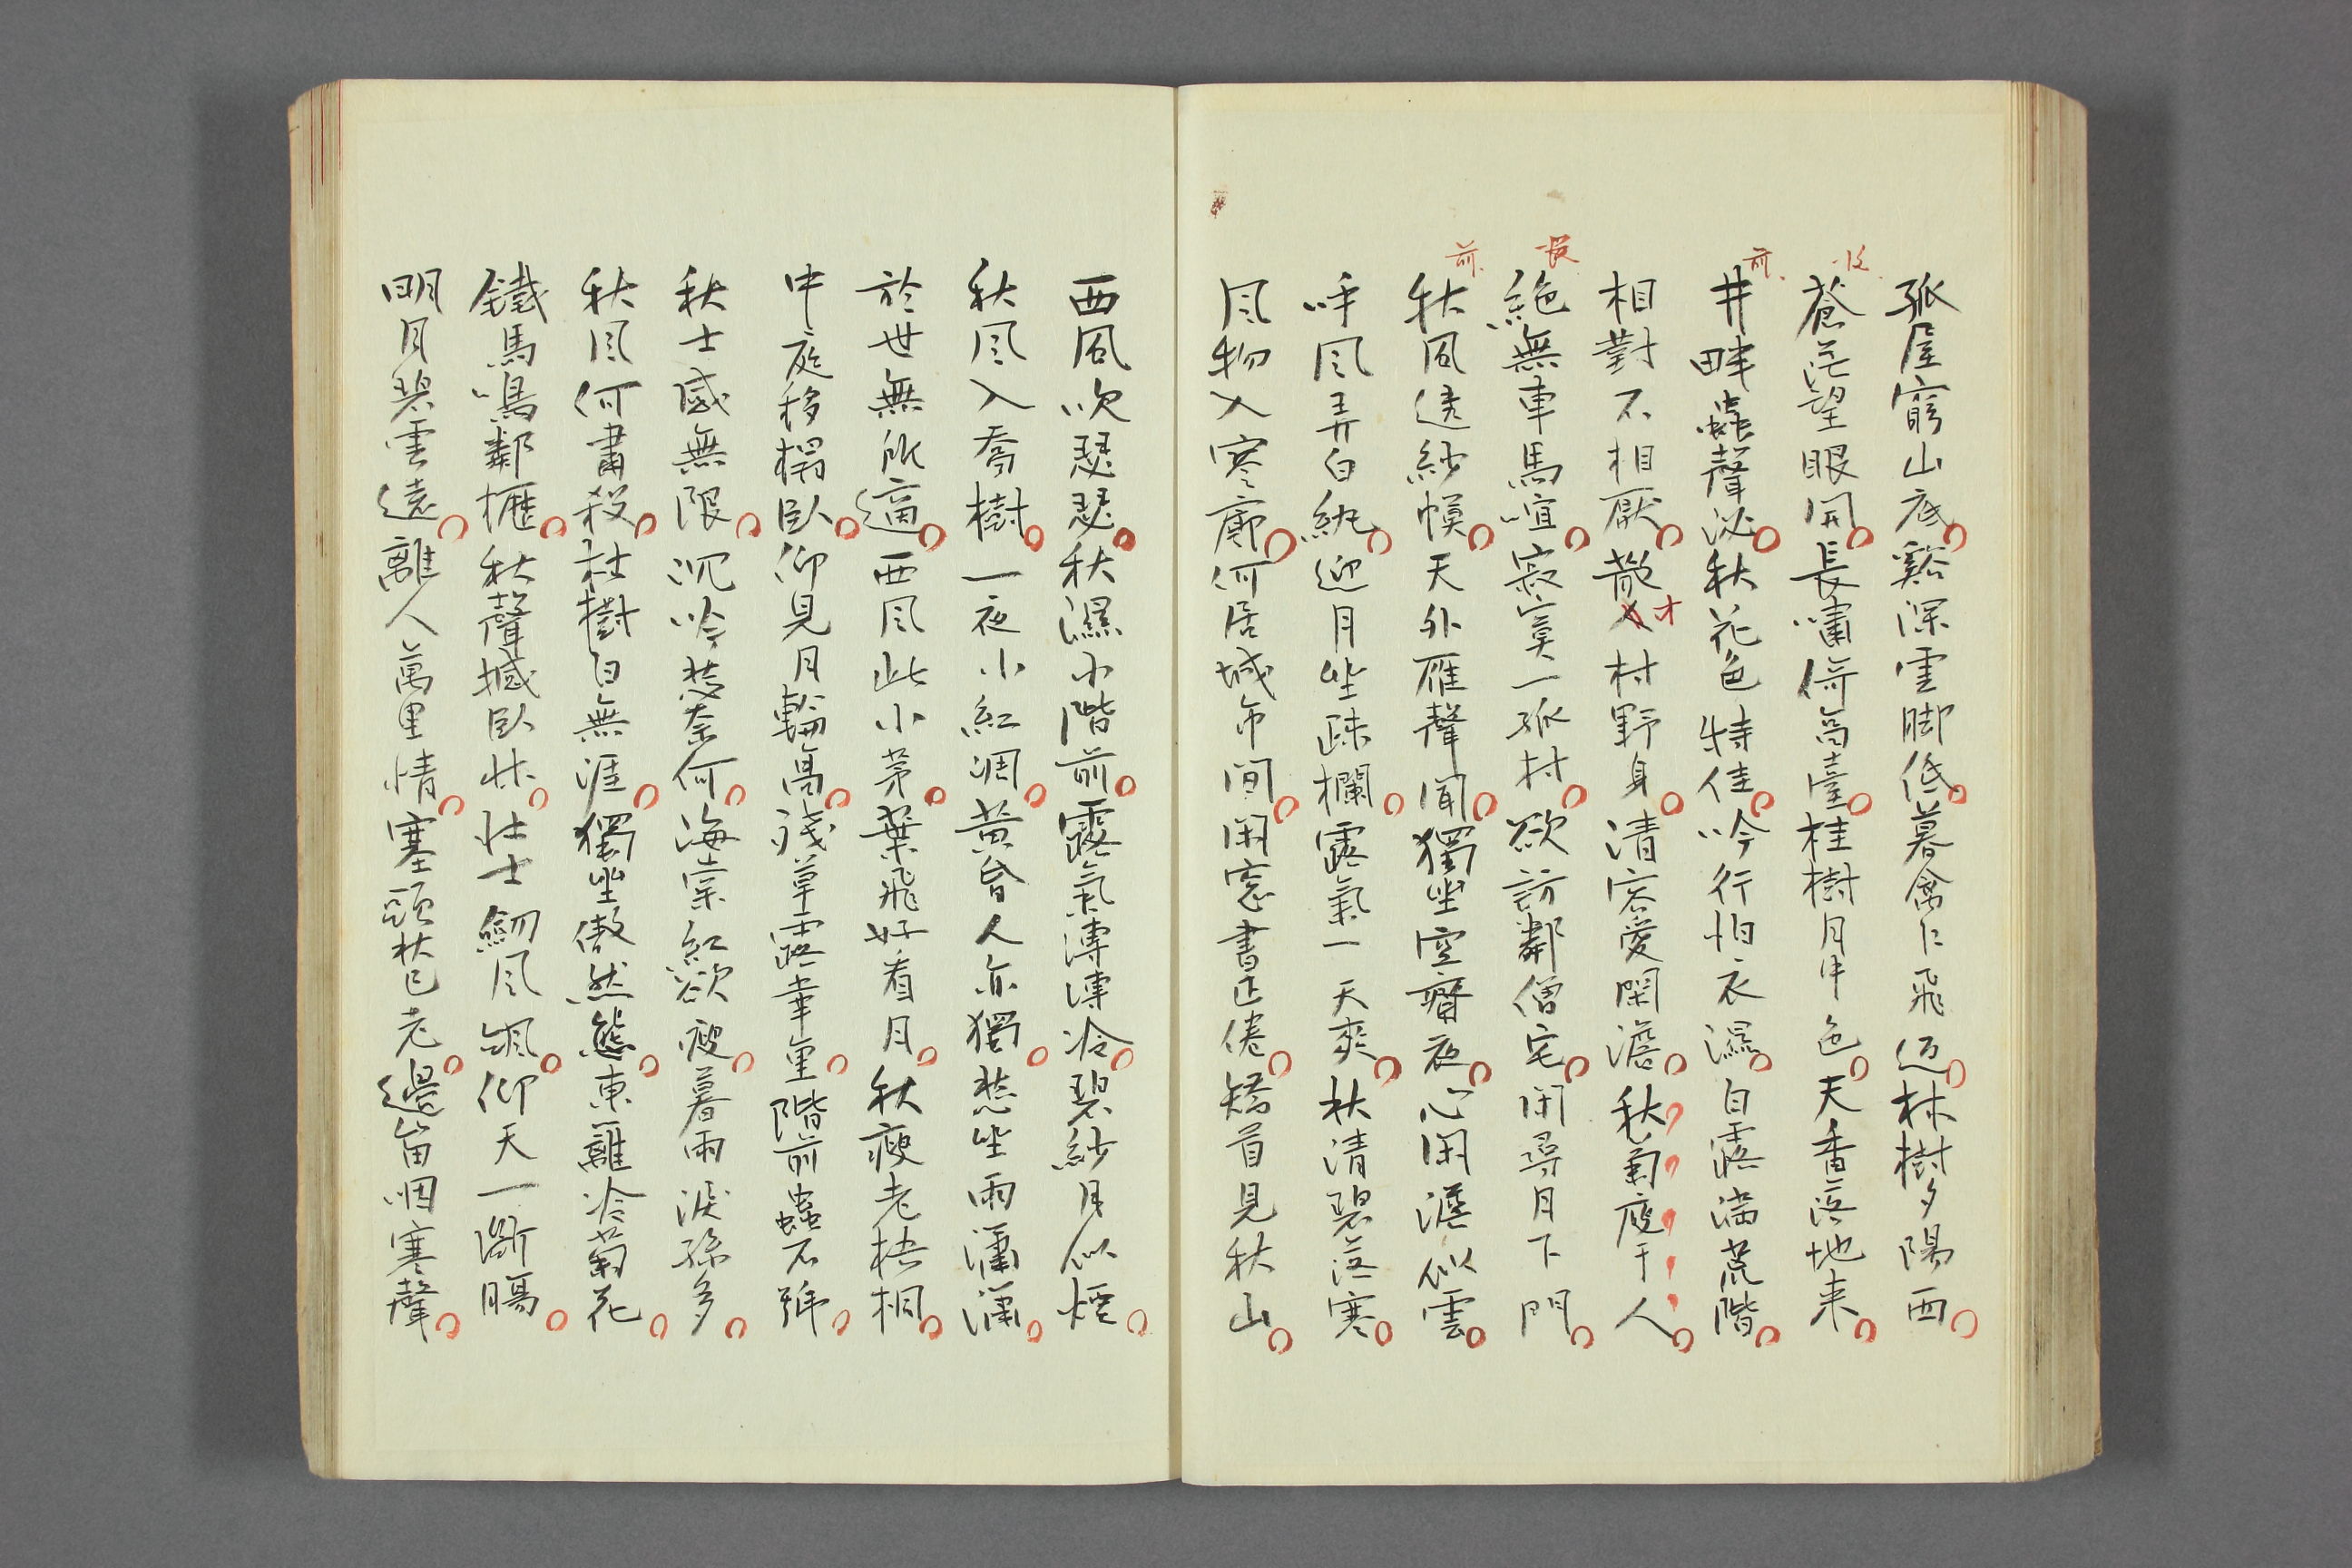 孤屋窮山底谿深雲脚低暮禽仁飛迈林樹夕陽西
蒼茫望眼開長嘯倚高臺桂樹月中色天香落地来
前
井畔蟲聲泌秋花色特佳吟行怕衣濕白露満荒階
相對不相厭散才村野身清容愛閑澹秋菊庭于人
長
絶無車馬喧寂寞一孤村欲訪鄰僧宅閑尋月下門
前
秋風透紗幙天外雁聲聞獨坐空齋夜心閑澹似雲
呼風弄白紈迎月坐疎欄露氣一天爽秋清碧落寒
風物入寒廓何居城市間閑窓書正倦矯首見秋山
西風吹瑟瑟秋濕小階前露氣漙漙冷碧紗月似煙
秋風入喬樹一夜小紅凋黄昏人亦獨愁坐雨瀟瀟
於世無所適西風此小茅葉飛好看月秋瘦老梧桐
中庭移榻臥仰見月輪高淺草露華重階前蟲不號
秋士感無限沉吟愁奈何海棠紅欲瘦暮雨淚孫多
秋風何肅殺杜樹自無涯獨坐傲然態東籬冷菊花
鐵馬鳴鄰櫪秋聲撼臥牀壮士劔風颯仰天一斷腸
明月碧雲遠離人萬里情塞頭秋已老邊笛咽寒聲